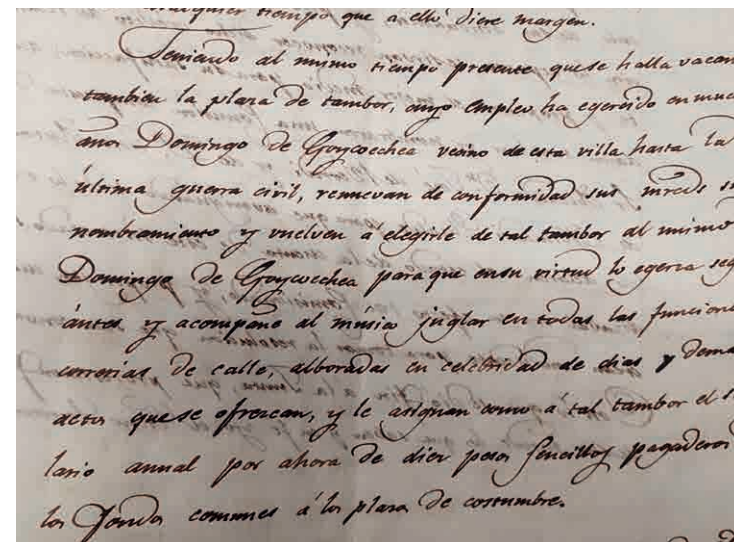 tiempo que a ello diere margen.
Teniendo al mismo tiempo presente que se halla vacan
tambien la plaza de tambor, cuyo empleo ha egercido en muc
años Domingo de Goycoechea vecino de esta villa hasta la
última guerra civil, renuevan de conformidad sus mrceds su
nombramiento y vuelven á elegirle de tal tambor al mismo
Domingo de Goycoechea para que en su virtud lo egerza seg
ántes y acompañe al músico juglar en todas las funcion
correrias de calle, alboradas en celebridad de dias y dema
actos que se ofrezcan, y le asignan como á tal tambor el s
lario annual por ahora de diez pesos sencillos pagaderos
los Fondos comunes á los plazos de costumbre.